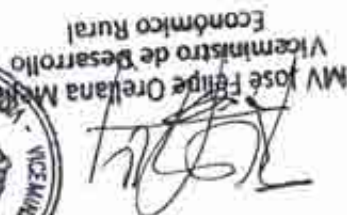 MV José Felipe Orellana Mejía
Viceministro de Desarrollo
Económico Rural
VICEMIN